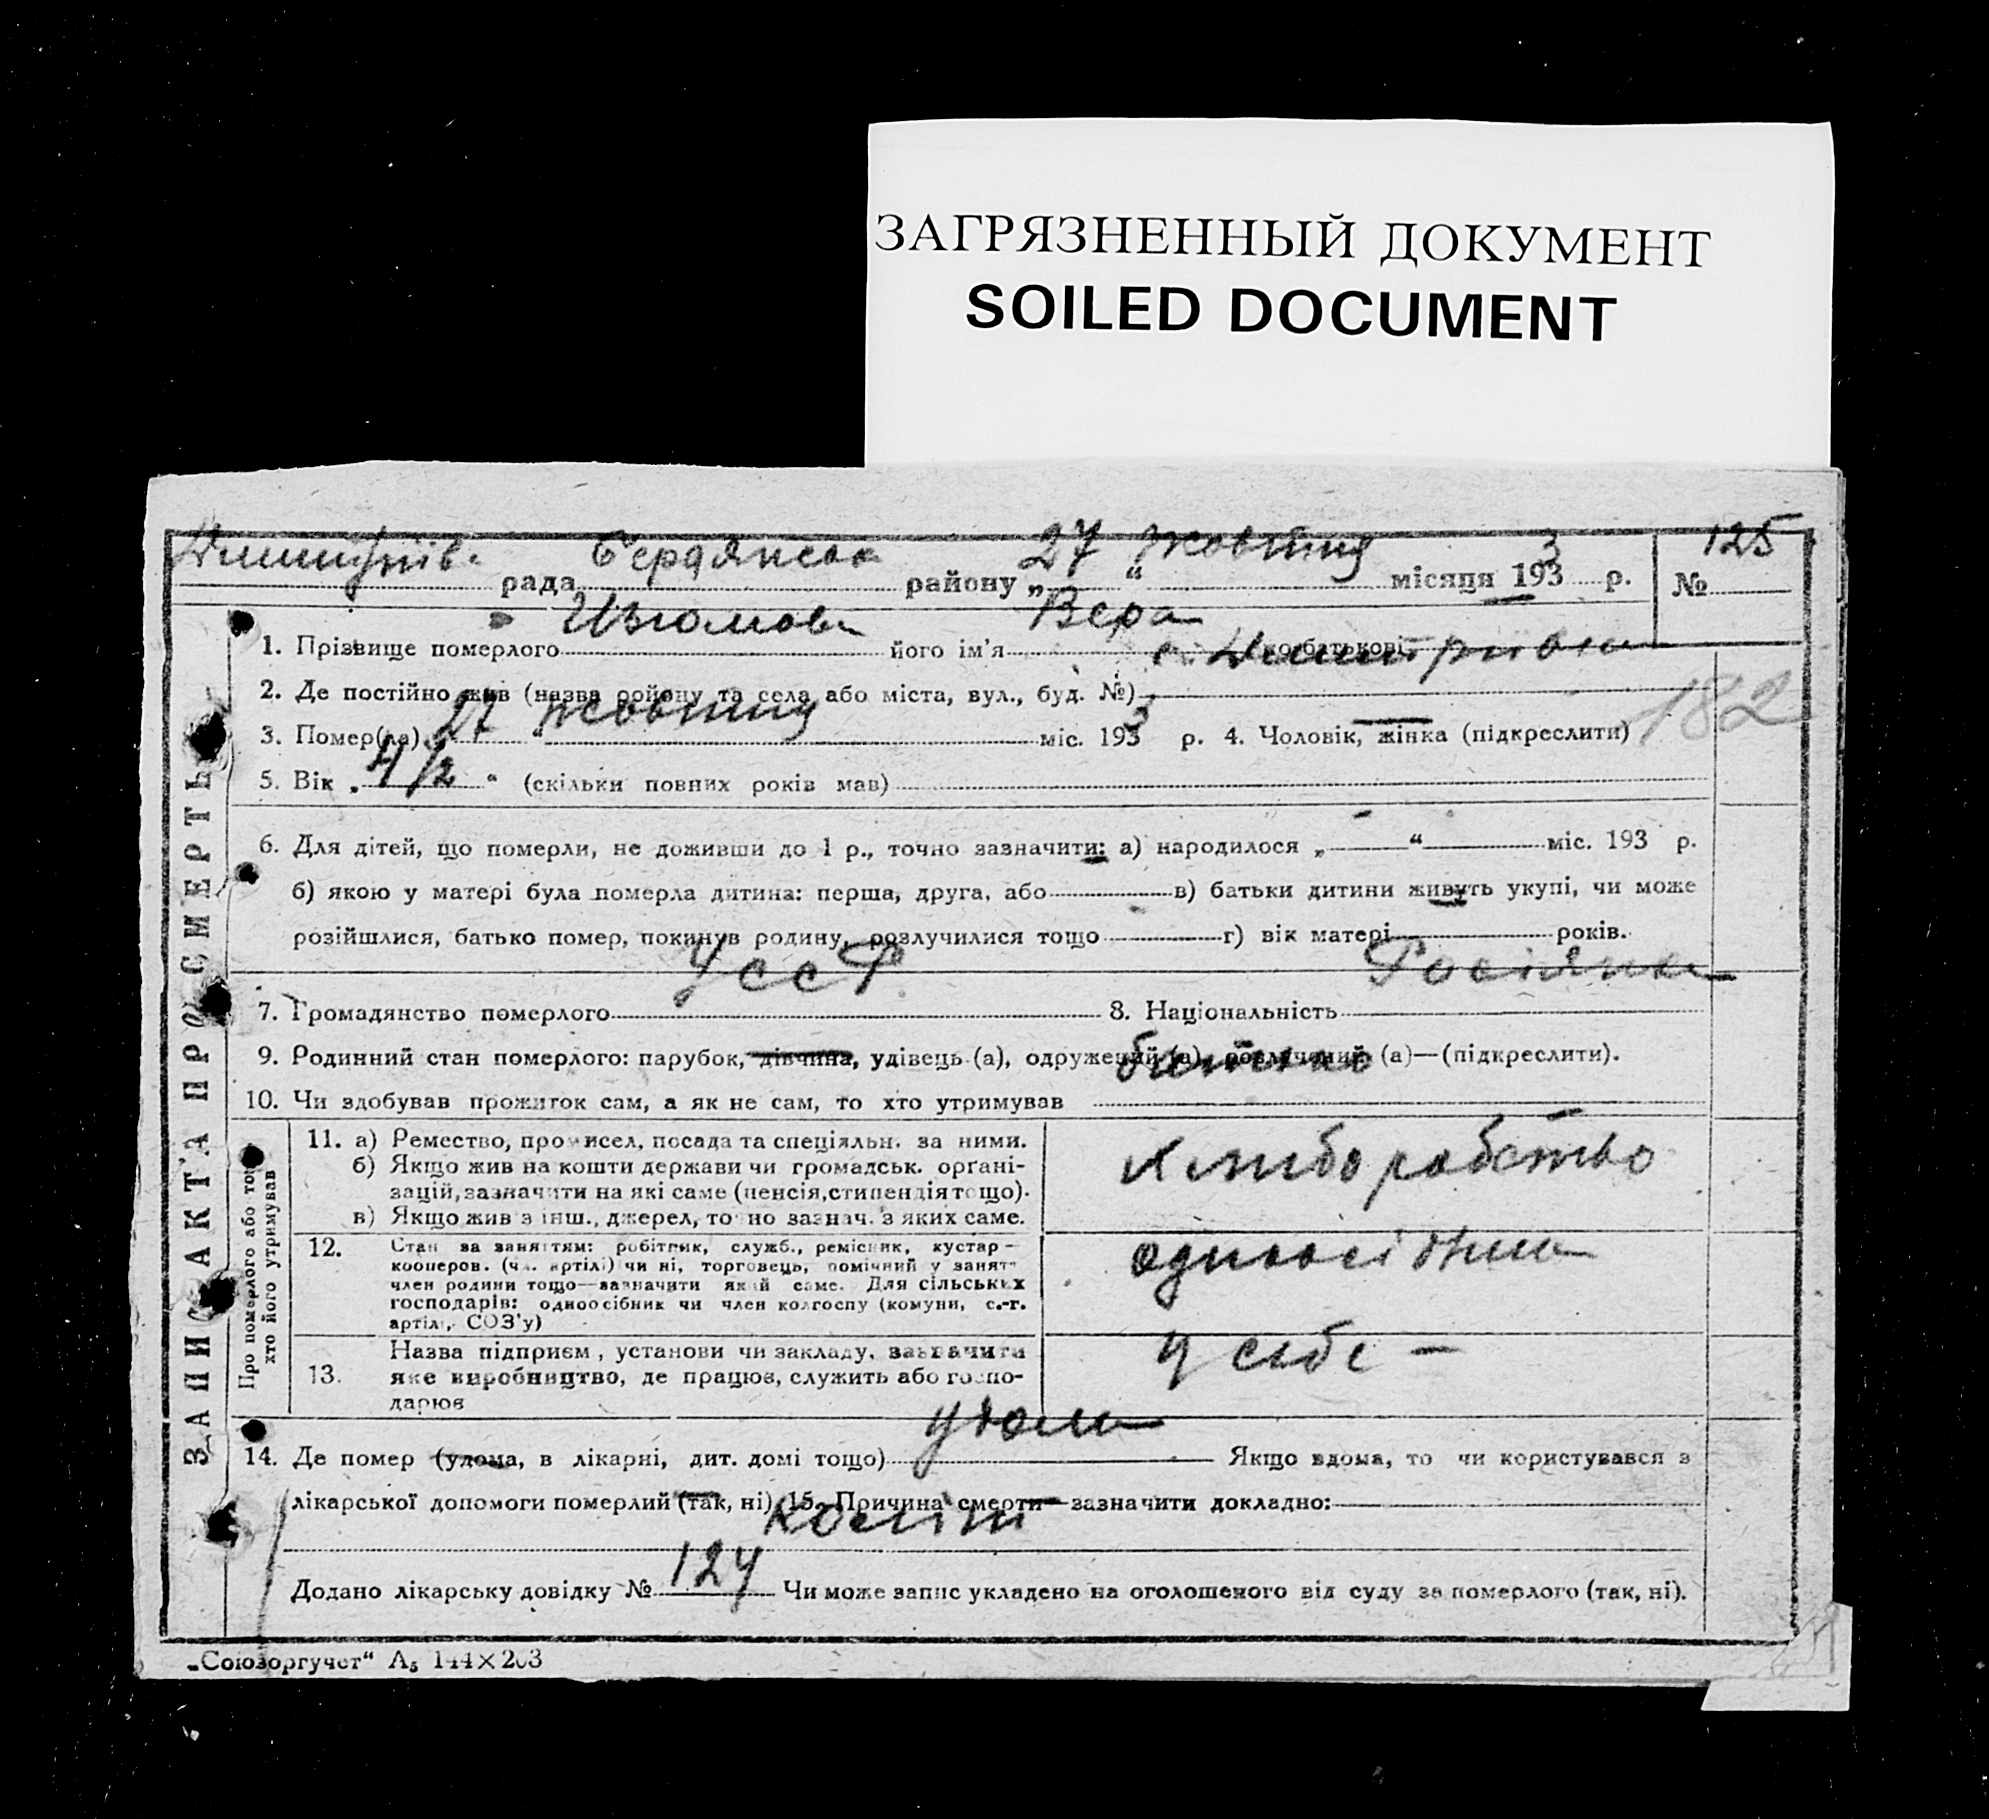 ЗАГРЯЗНЕННЫЙ ДОКУМЕНТ
SOILED DOCUMENT
Дмитрів. рада Бердянськ району „27“ жовтня місяця 1933 р. № 125
ЗАПИС АКТА ПРО СМЕРТЬ
1. Прізвище померлого Изюмова його ім'я Вера по батькові
с. Дмитрівка
2. Де постійно жив (назва району та села або міста, вул., буд. №)
182
3. Помер(ла) „27“ жовтня міс. 1933 р. 4. Чоловік, жінка (підкреслити)
5. Вік „4 1/2“ (скільки повних років мав)
6. Для дітей, що померли, не доживши до 1 р., точно зазначити: а) народилося „ “ міс. 193 р.
б) якою у матері була померла дитина: перша, друга, або в) батьки дитини живуть укупі, чи може
розійшлися, батько помер, покинув родину, розлучилися тощо г) вік матері років.
7. Громадянство померлого УССР 8. Національність Росіянка
9. Родинний стан померлого: парубок, дівчина, удівець (а), одружений (а), розлучений (а)—(підкреслити).
10. Чи здобував прожиток сам, а як не сам, то хто утримував батько
Про померлого або того хто його утримував
11. а) Ремество, промисел, посада та спеціяльн. за ними.
б) Якщо жив на кошти держави чи громадськ. органі-
зацій, зазначити на які саме (пенсія, стипендія тощо).
в) Якщо жив з інш., джерел, точно зазнач. з яких саме.
хлиборобство
12. Стан за заняттям: робітник, служб., ремісник, кустар-
кооперов. (чл. артілі) чи ні, торговець, помічний у занят-
член родини тощо—зазначити який саме. Для сільських
господарів: одноосібник чи член колгоспу (комуни, с.-г.
артілі, СОЗ'у)
13. Назва підприєм, установи чи закладу, зазначити
яке виробництво, де працює, служить або госпо-
дарює
у себе -
14. Де помер (удома, в лікарні, дит. домі тощо) удома Якщо вдома, то чи користувався з
лікарської допомоги померлий (так, ні) 15. Причина смерти—зазначити докладно:
Додано лікарську довідку № 124 Чи може запис укладено на оголошеного від суду за померлого (так, ні).
„Союзоргучет“ А₅ 144×203